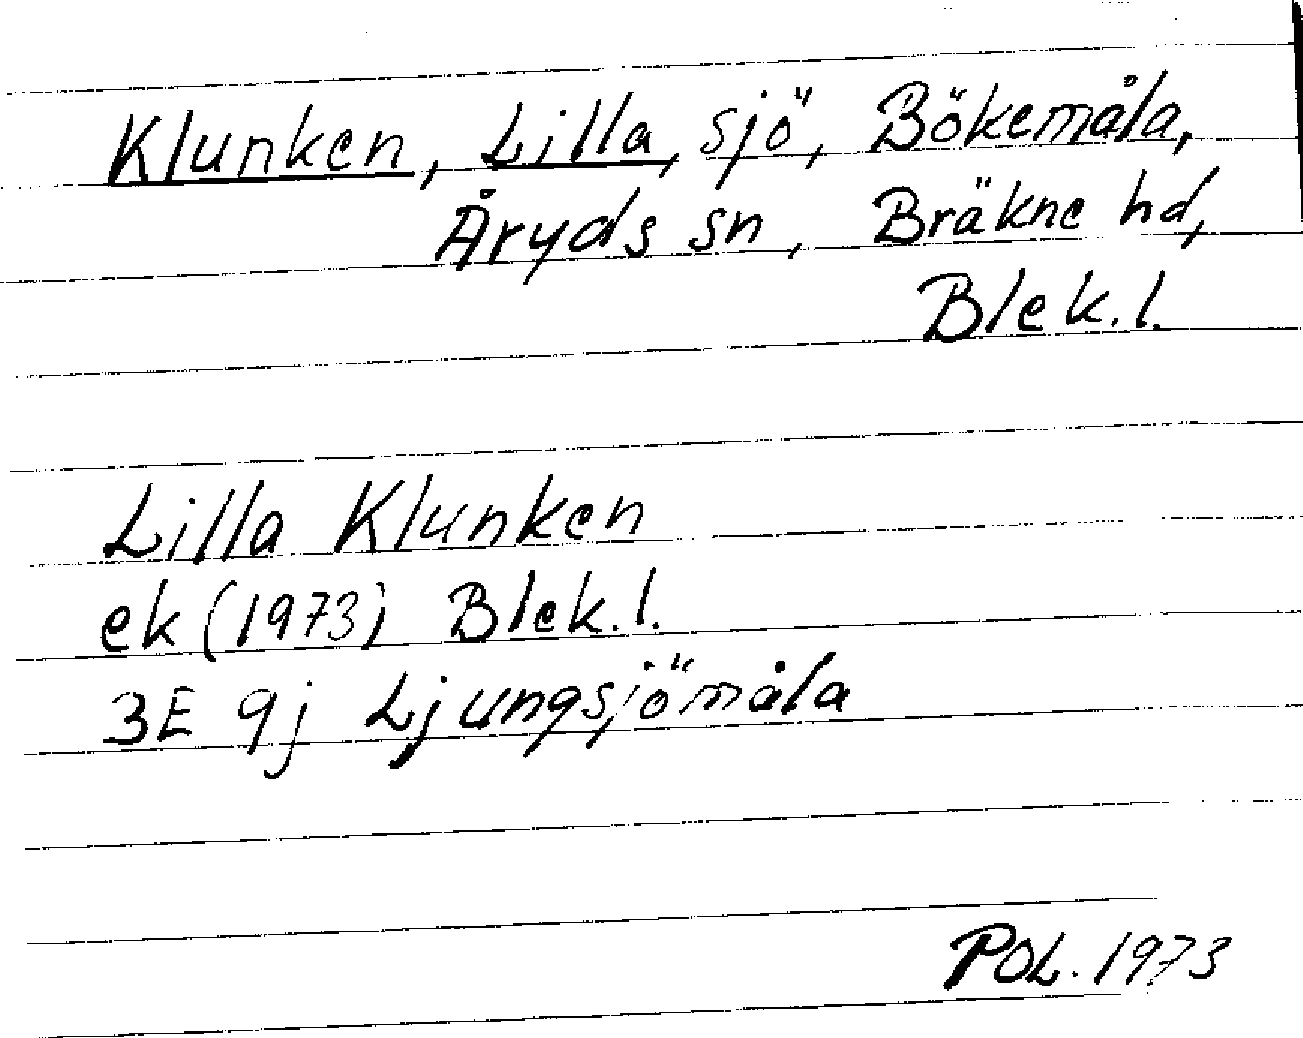 Klunken, Lilla, sjö, Bökemåla,
Åryds sn, Bräkne hd,
Blek.l.
Lilla Klunken
ek (1973) Blek.l.
3E 9j Ljungsjömåla
POL. 1973